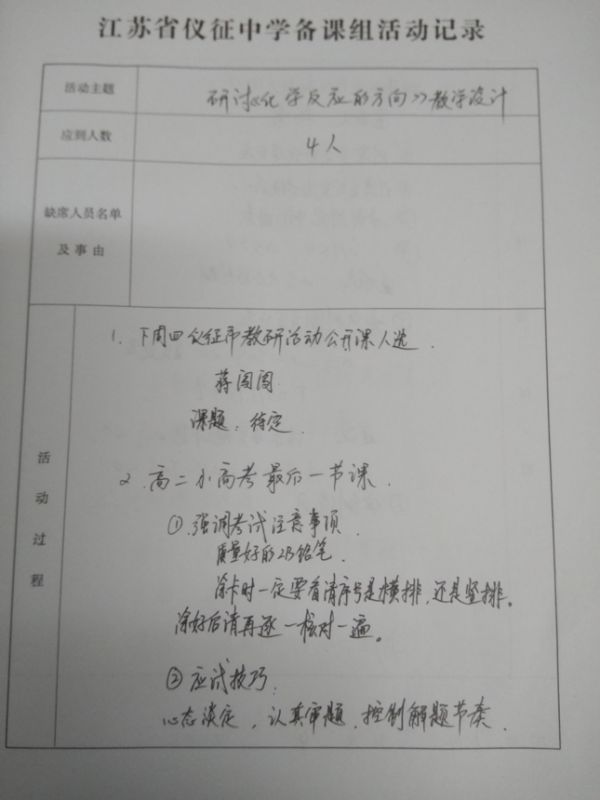 江苏省仪征中学备课组活动记录
活动主题
研讨《化学反应的方向》教学设计
应到人数
4人
缺席人员名单
及事由
活动过程
1. 下周四仪征市教研活动公开课人选.
蒋闺闺
课题: 待定.
2. 高二小高考最后一节课.
①强调考试注意事项.
质量好的2B铅笔.
涂卡时一定要看清序号是横排,还是竖排。
涂好后请再逐一核对一遍。
②应试技巧.
心态淡定, 认真审题, 控制解题节奏.